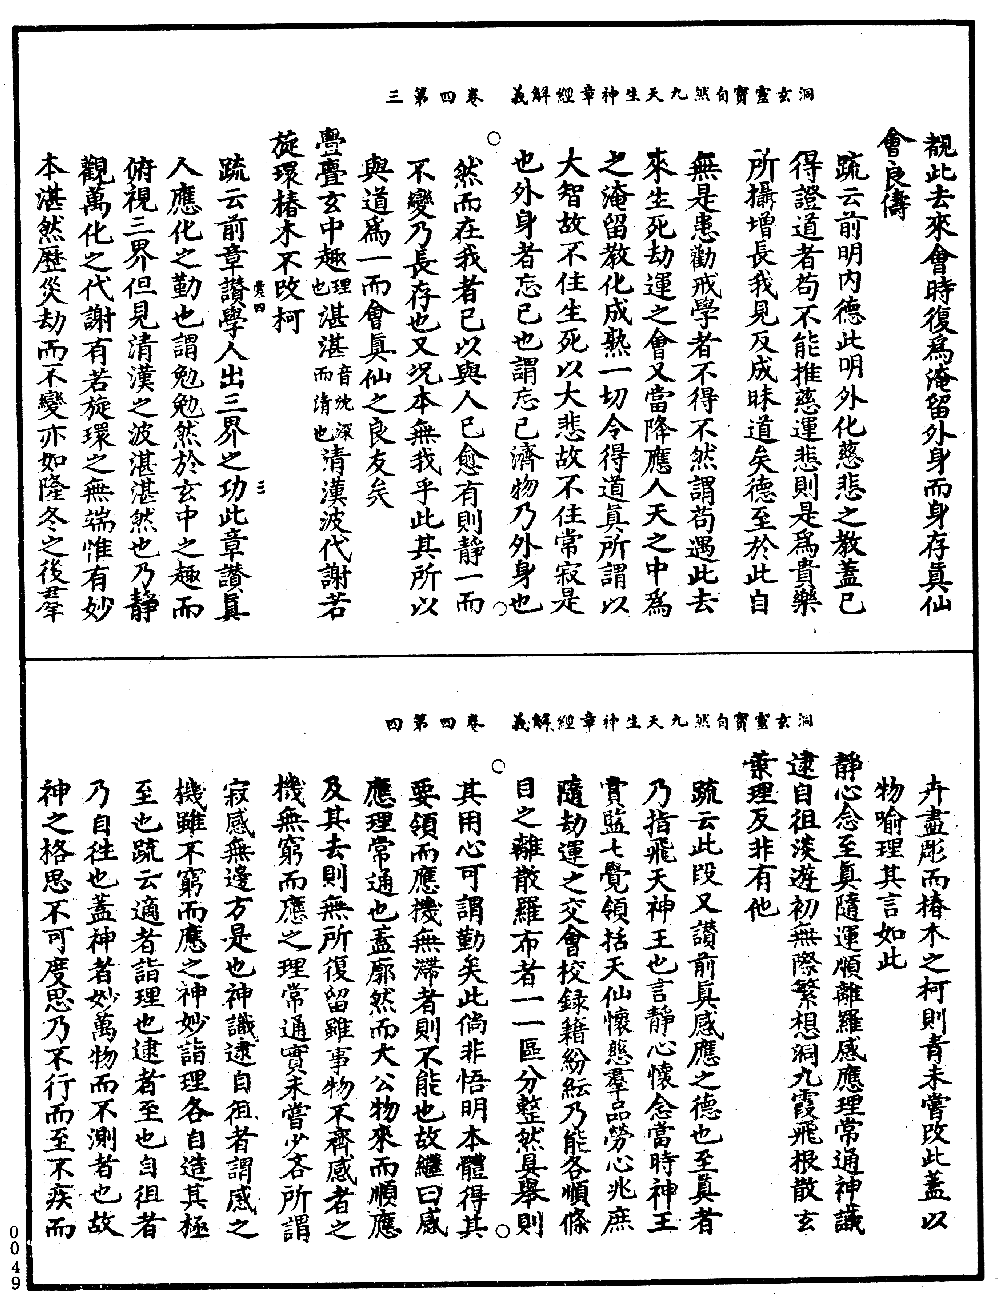 洞玄靈寶自然九天生神章經解義　卷四第三
覩此去來會時復爲淹留外身而身存眞仙
會良儔
疏云前明内德此明外化慈悲之教蓋已
得證道者苟不能推慈運悲則是爲貴藥
所攝增長我見反成昧道矣德至於此自
無是患勸戒學者不得不然謂苟遇此去
來生死劫運之會又當降應人天之中爲
之淹留教化成熟一切令得道眞所謂以
大智故不住生死以大悲故不住常寂是
也外身者忘己也謂忘己濟物乃外身也
然而在我者己以與人己愈有則靜一而
不變乃長存也又况本無我乎此其所以
與道爲一而會眞仙之良友矣
亹亹玄中趣理也湛湛音沈深而清也清漢波代謝若
旋環椿木不改柯
疏云前章讚學人出三界之功此章讃眞
人應化之勤也謂勉勉然於玄中之趣而
俯視三界但見清漢之波湛湛然也乃靜
觀萬化之代謝有若旋環之無端惟有妙
本湛然歷災劫而不變亦如隆冬之後羣
卷四　三
洞玄靈寶自然九天生神章經解義　卷四第四
卉盡彫而椿木之柯則青未嘗改此蓋以
物喻理其言如此
靜心念至眞隨運順離羅感應理常通神識
逮自徂淡遊初無際繁想洞九霞飛根散玄
葉理反非有他
疏云此段又讃前眞感應之德也至眞者
乃指飛天神王也言靜心懷念當時神王
賞監七覺領括天仙懷慜羣品勞心兆庶
隨劫運之交會校録籍紛紜乃能各順條
目之離散羅布者一一區分整然具舉則
其用心可謂勤矣此倘非悟明本體得其
要領而應機無滯者則不能也故繼曰感
應理常通也蓋廓然而大公物來而順應
及其去則無所復留雖事物不齊感者之
機無窮而應之理常通實未嘗少吝所謂
寂感無邊方是也神識逮自徂者謂感之
機雖不窮而應之神妙詣理各自造其極
至也疏云適者詣理也逮者至也自徂者
乃自徃也蓋神者妙萬物而不測者也故
神之格思不可度思乃不行而至不疾而
0049